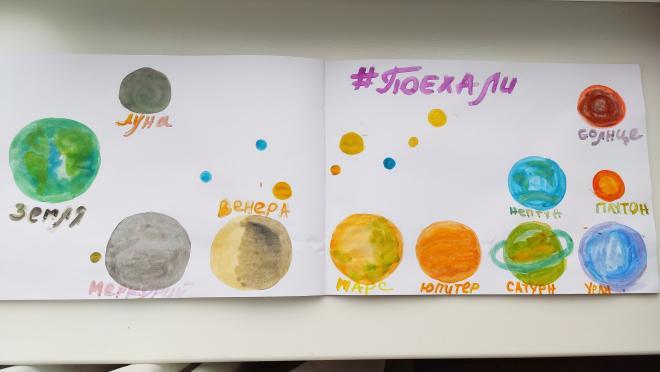 #ПОЕХАЛИ
ЛУНА
СОЛНЦЕ
ЗЕМЛЯ
ВЕНЕРА
НЕПТУН
ПЛУТОН
МЕРКУРИЙ
МАРС
ЮПИТЕР
САТУРН
УРАН